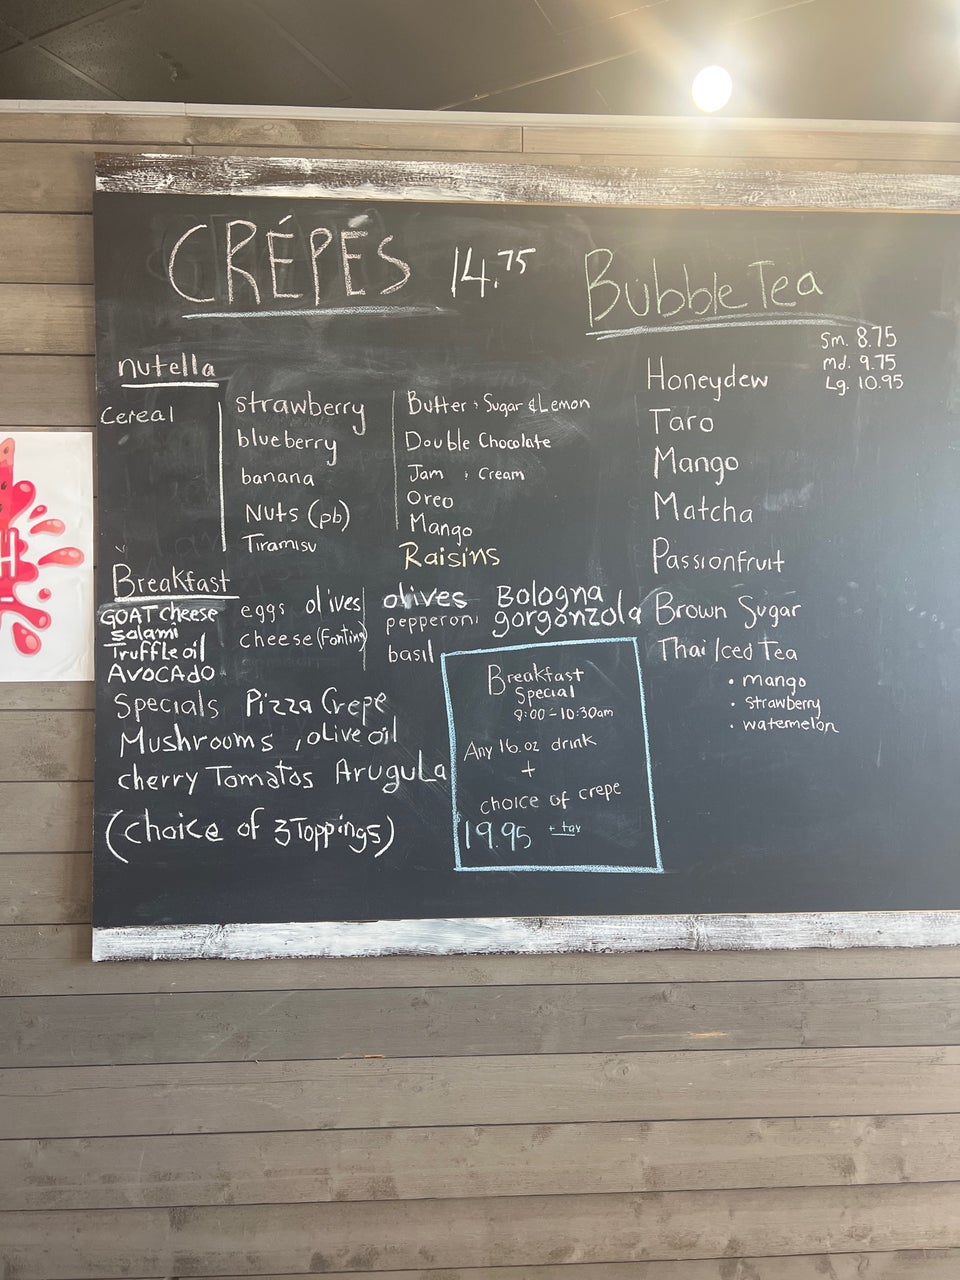 CRÉPÉS 14.75
nutella
Cereal
strawberry
blueberry
banana
Nuts (pb)
Tiramisu
Butter, Sugar & Lemon
Double Chocolate
Jam, Cream
Oreo
Mango
Raisins
Breakfast
GOAT cheese
Salami
Truffle oil
AVOCADO
eggs olives
cheese (Fontina)
olives Bologna
pepperoni gorgonzola
basil
Specials Pizza Crepe
Mushrooms, olive oil
cherry Tomatos Arugula
(choice of 3 Toppings)
Breakfast
Special
9:00-10:30am
Any 16.oz drink
+
choice of crepe
19.95 + tax
Bubble Tea
Sm. 8.75
Md. 9.75
Lg. 10.95
Honeydew
Taro
Mango
Matcha
Passionfruit
Brown Sugar
Thai Iced Tea
• mango
• strawberry
• watermelon
H